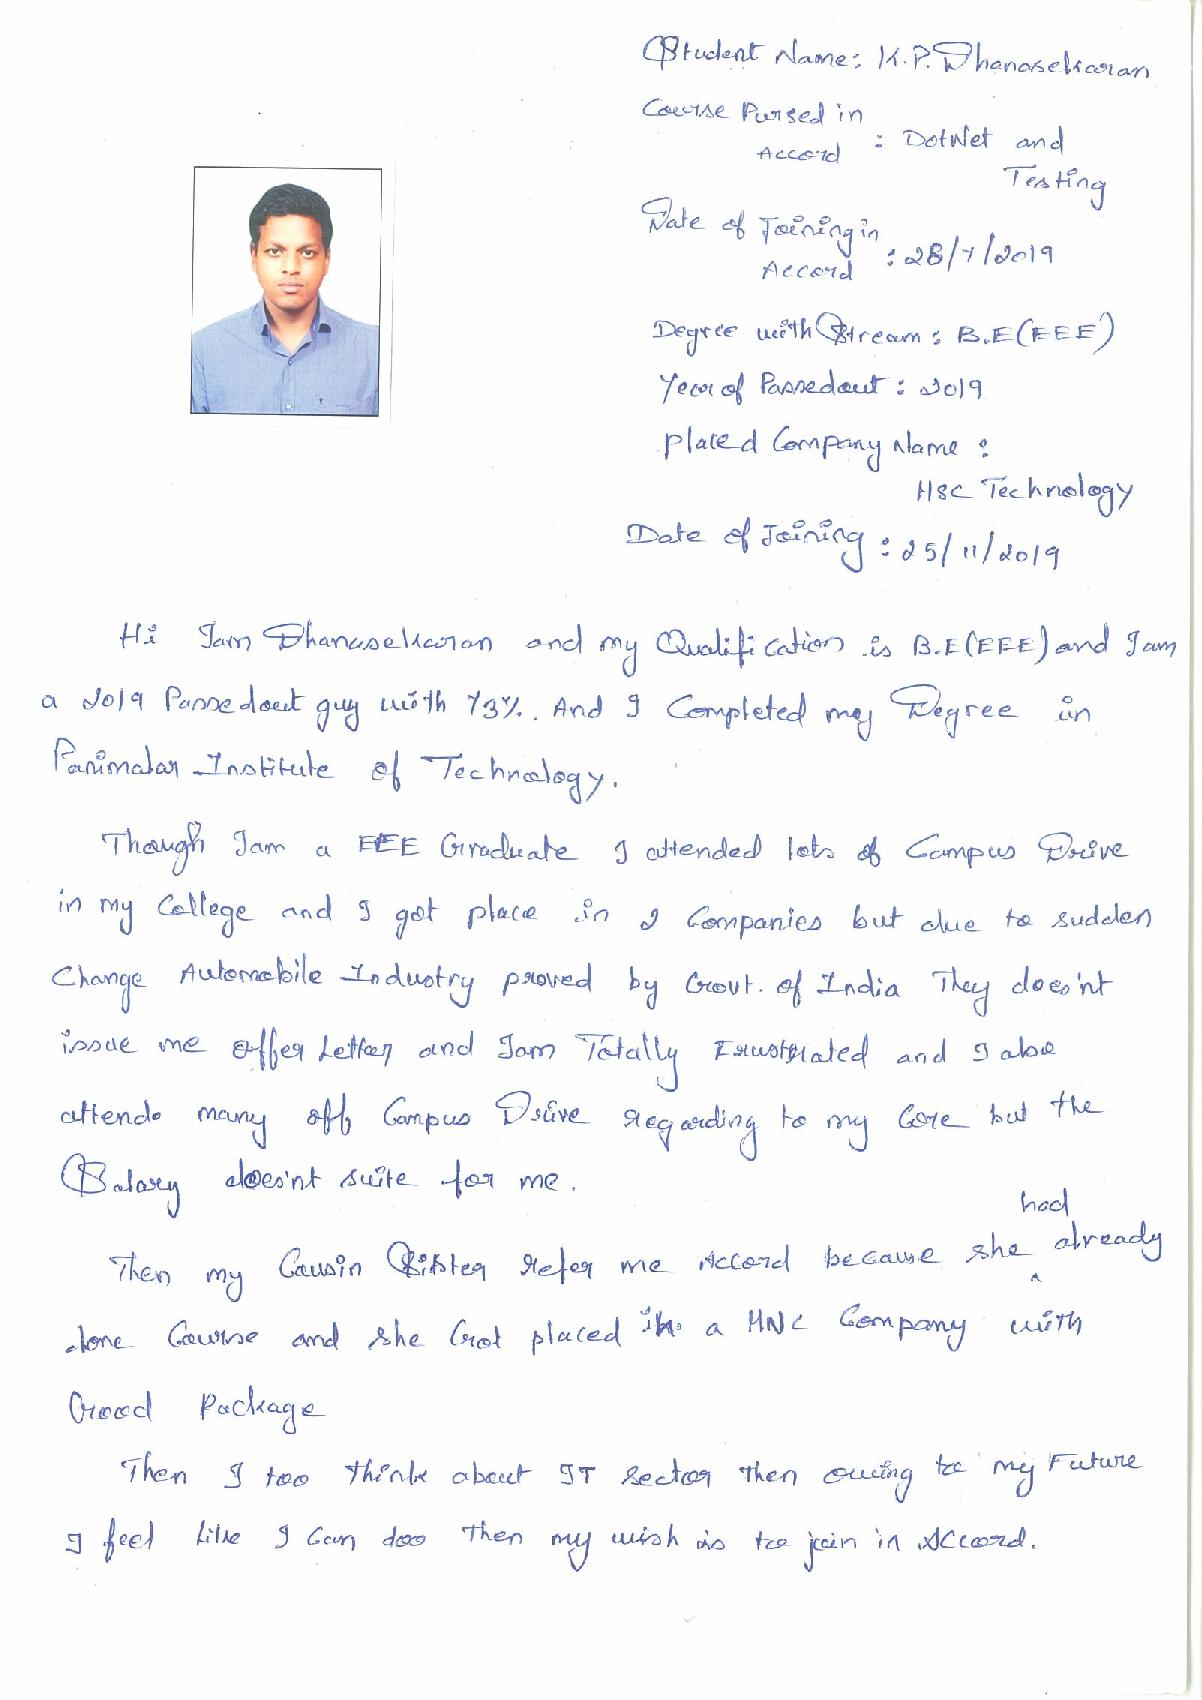 Student Name: K.P. Dhanasekaran
Course Pursed in
Accord : DotNet and
Testing
Date of Joining in
Accord : 28/7/2019
Degree with Stream : B.E(EEE)
Year of Passedout : 2019
Placed Company Name :
HSC Technology
Date of Joining : 25/11/2019
Hi Iam Dhanasekaran and my Qualification is B.E(EEE) and Iam
a 2019 Passedout guy with 73%. And I Completed my Degree in
Panimalar Institute of Technology.
Though Iam a EEE Graduate I attended lots of Campus Drive
in my College and I got place in 2 Companies but due to sudden
Change Automobile Industry proved by Govt. of India They does'nt
issue me offer Letter and Iam Totally Frustrated and I also
attends many off Campus Drive regarding to my Core but the
Salary does'nt suite for me.
Then my Cousin Sister refer me Accord because she had already
done Course and she Got placed in a MNC Company with
Good Package
Then I too think about IT sector then owing to my Future
I feel Like I Can doo Then my wish is to join in Accord.